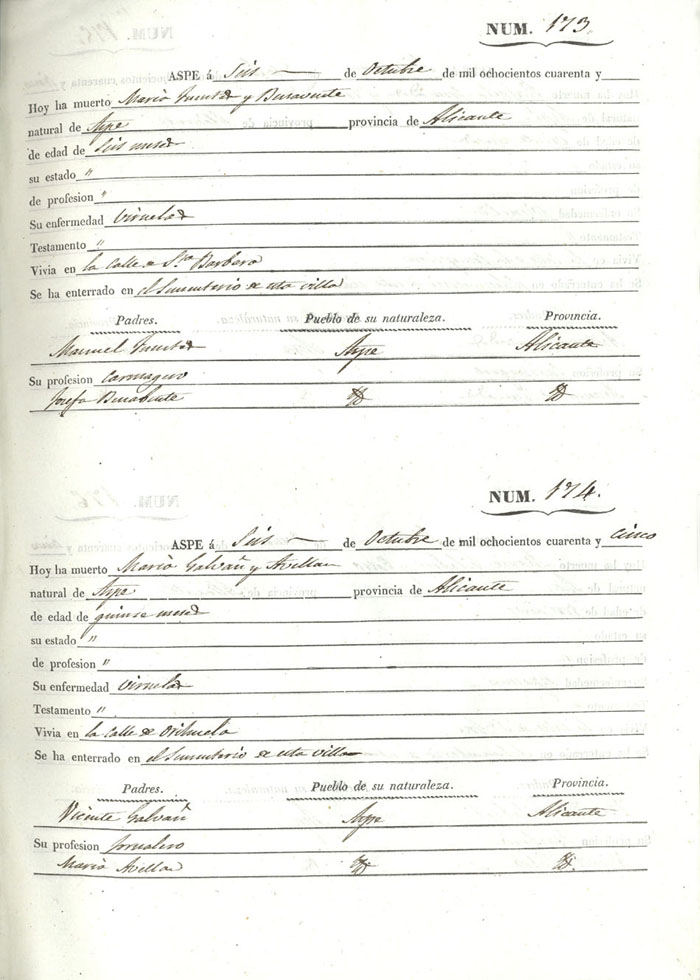 NUM. 173.
ASPE á Seis de Octubre de mil ochocientos cuarenta y
Hoy ha muerto Maria y Benavente
natural de Aspe provincia de Alicante
de edad de seis meses
su estado "
de profesion "
Su enfermedad Viruelas
Testamento "
Vivia en la calle de Sta Barbera
Se ha enterrado en el Sementerio de esta villa
Padres. Pueblo de su naturaleza. Provincia.
Manuel Aspe Alicante
Su profesion
Josefa Benabente
NUM. 174.
ASPE á Seis de Octubre de mil ochocientos cuarenta y cinco
Hoy ha muerto Maria Galvañ y Avellan
natural de Aspe provincia de Alicante
de edad de quinse meses
su estado "
de profesion "
Su enfermedad Viruelas
Testamento "
Vivia en la calle de Orihuela
Se ha enterrado en el Sementerio de esta villa
Padres. Pueblo de su naturaleza. Provincia.
Vicente Galvañ Aspe Alicante
Su profesion Jornalero
Maria Avellan